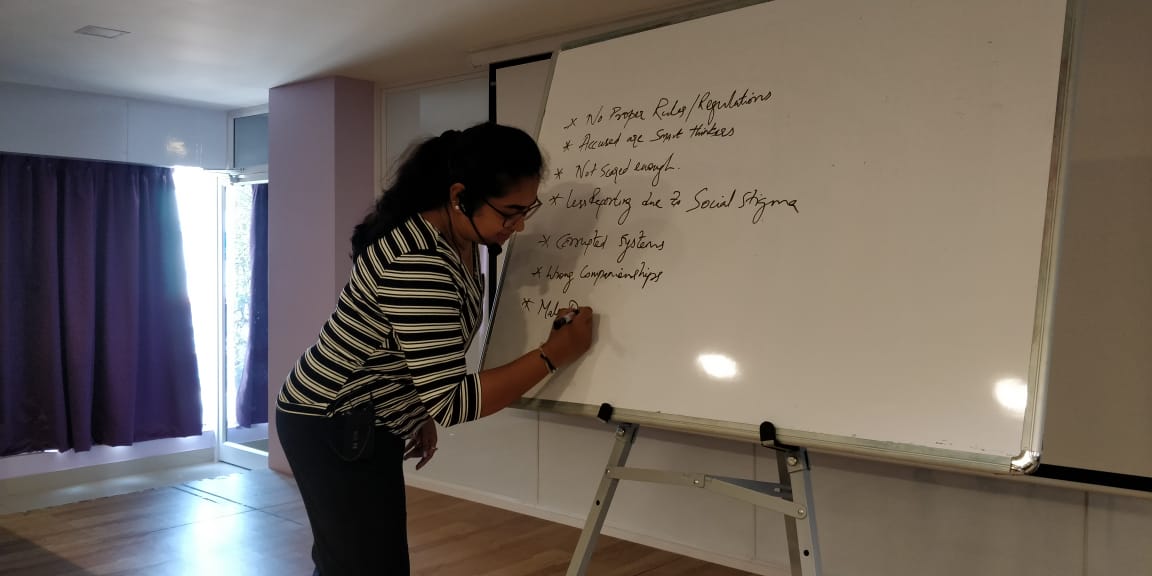 * No Proper Rules/Regulations
* Accused are Smart thinkers
* Not Scared enough.
* Less Reporting due to Social Stigma
* Corrupted Systems
* Wrong Companionships
* Male